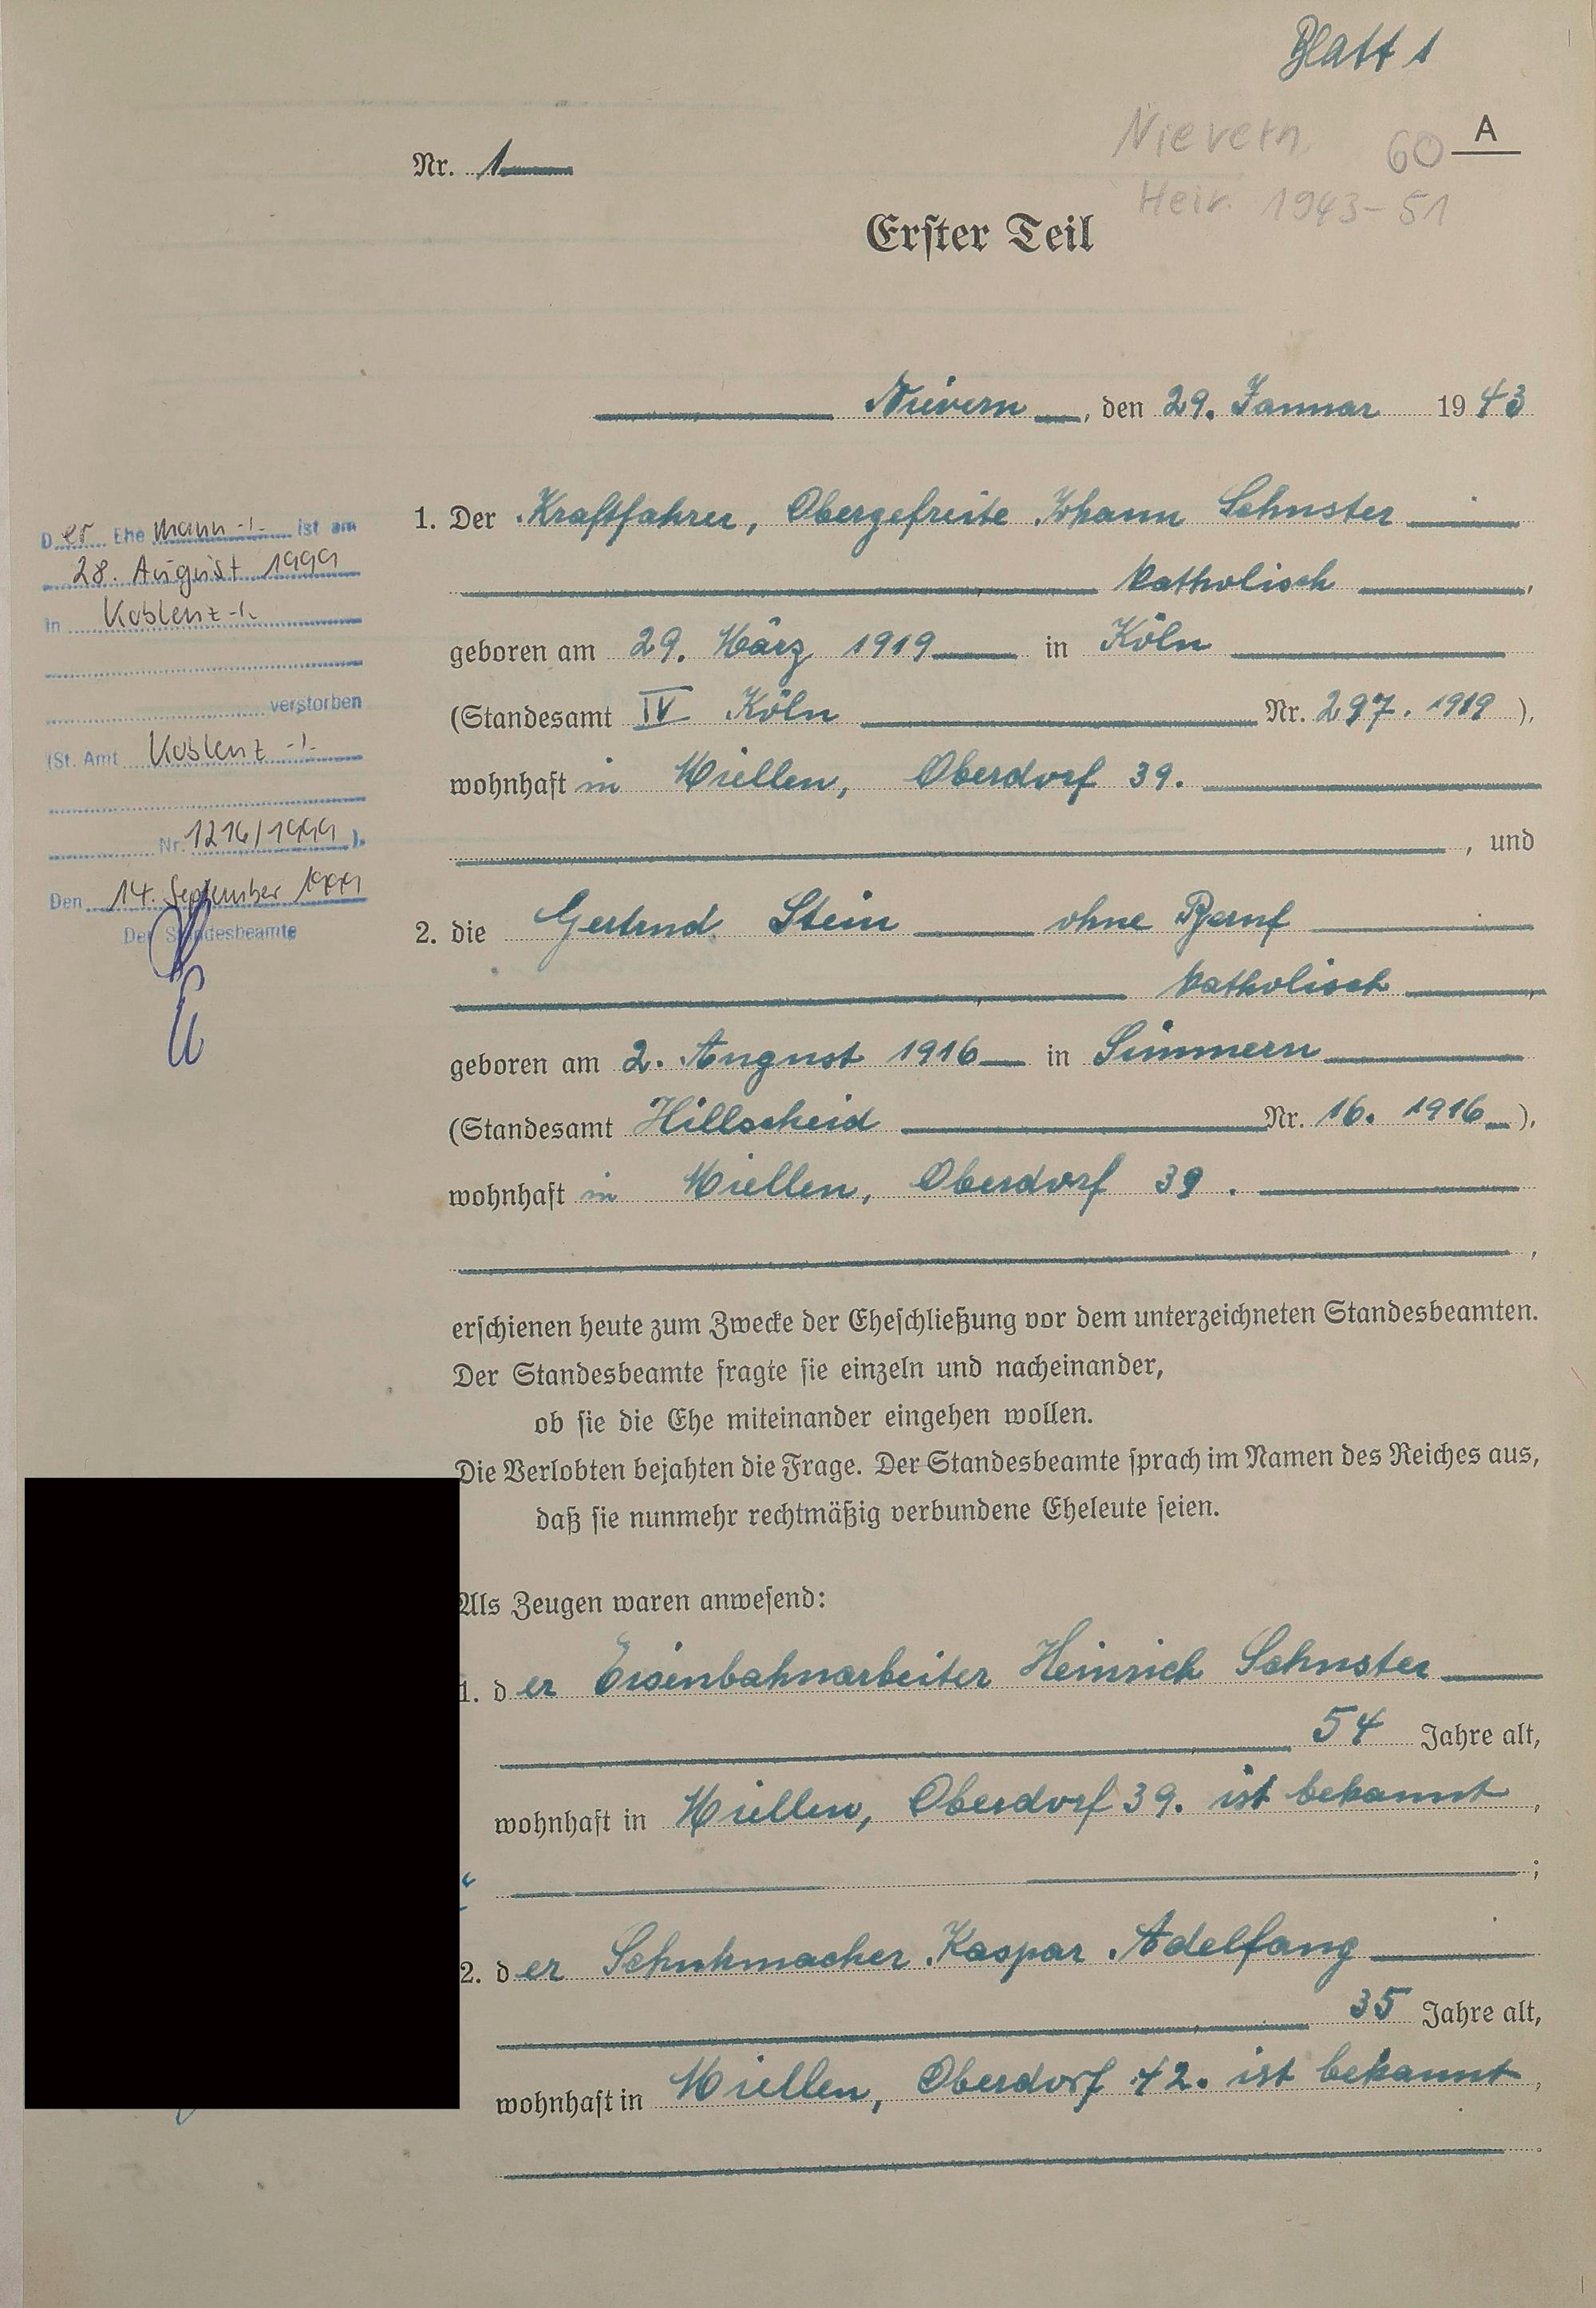 Blatt 1
Nievern 60 A
Heir. 1943-51
Nr. 1
Erster Teil
Nievern, den 29. Januar 1943
1. Der Kraftfahrer, Obergefreite Johann Schuster
katholisch,
geboren am 29. März 1919 in Köln
(Standesamt IV Köln Nr. 297. 1919),
wohnhaft in Miellen, Oberdorf 39.
, und
2. die Gertrud Stein ohne Beruf
katholisch,
geboren am 2. August 1916 in Simmern
(Standesamt Hillscheid Nr. 16. 1916),
wohnhaft in Miellen, Oberdorf 39.
,
erschienen heute zum Zwecke der Eheschließung vor dem unterzeichneten Standesbeamten.
Der Standesbeamte fragte sie einzeln und nacheinander,
ob sie die Ehe miteinander eingehen wollen.
Die Verlobten bejahten die Frage. Der Standesbeamte sprach im Namen des Reiches aus,
daß sie nunmehr rechtmäßig verbundene Eheleute seien.
Als Zeugen waren anwesend:
1. der Eisenbahnarbeiter Heinrich Schuster
54 Jahre alt,
wohnhaft in Miellen, Oberdorf 39. ist bekannt,
;
2. der Schuhmacher Kaspar Adelfang
35 Jahre alt,
wohnhaft in Miellen, Oberdorf 42. ist bekannt,
.
Der Ehemann -/- ist am
28. August 1999
in Koblenz -/-
verstorben
(St. Amt Koblenz -/-
Nr. 1216/1999).
Den 14. September 1999
Der Standesbeamte